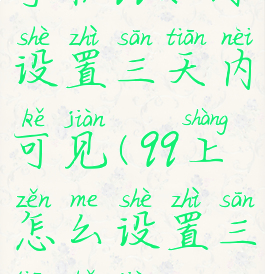 shè zhì sān tiān nèi
设置三天内
kě jiàn shàng
可见(99上
zěn me shè zhì sān
怎么设置三